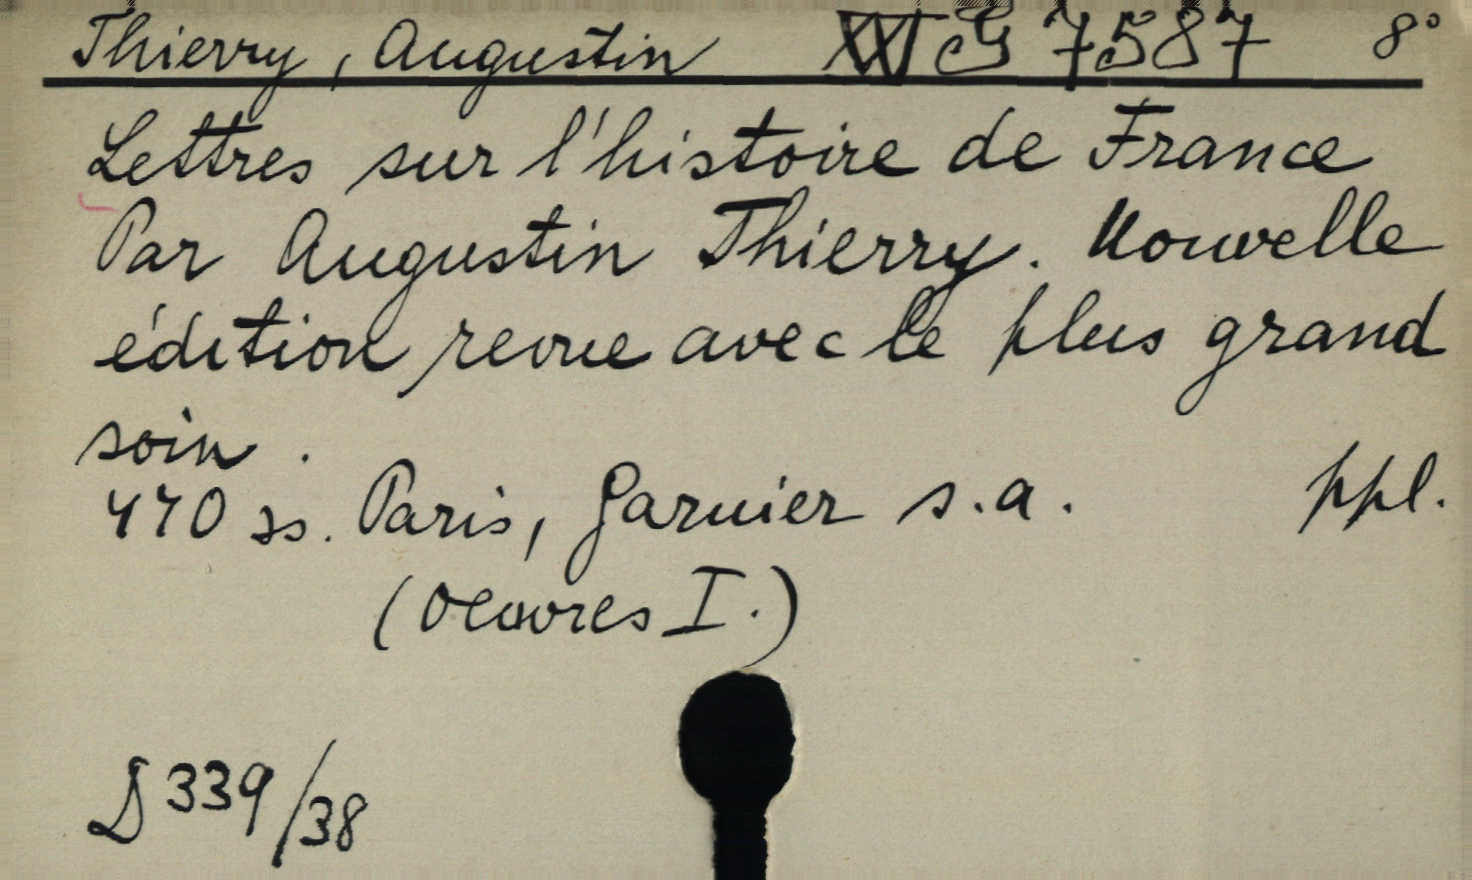 Thierry, Augustin XVI G 7587 8°
Lettres sur l'histoire de France
Par Augustin Thierry. Nouvelle
édition revue avec le plus grand
soin.
470 ss. Paris, Garnier s.a. ppl.
(Oeuvres I.)
D 339/38